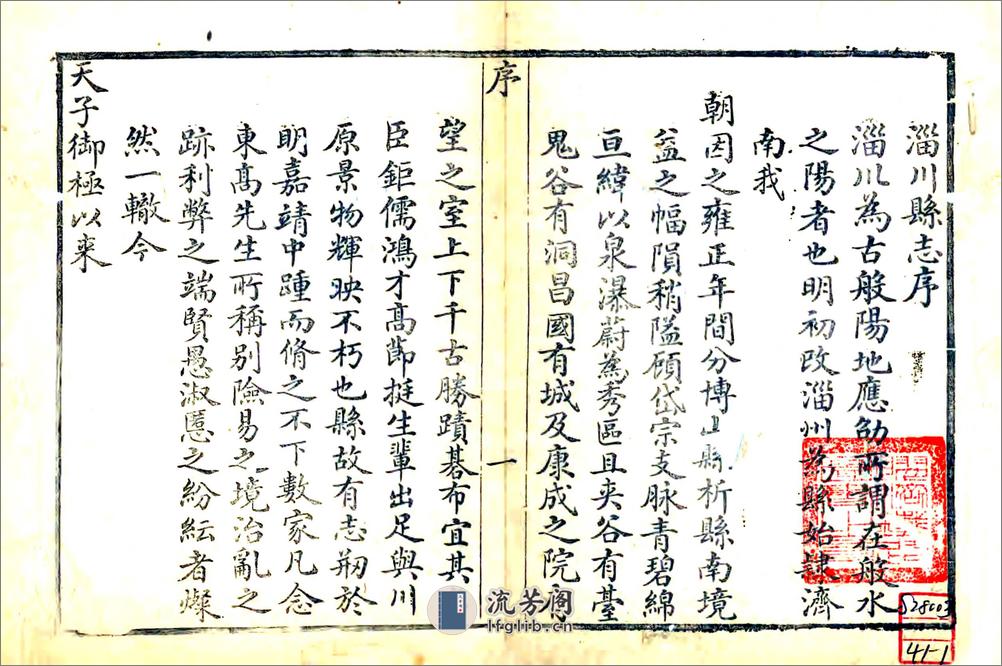 淄川縣志序
淄川為古般陽地應劭所謂在般水
之陽者也明初改淄州為縣始隸濟
南我
朝因之雍正年間分博山縣析縣南境
益之幅隕稍隘顧岱宗支脉青碧綿
亘緯以泉瀑蔚為秀區且夾谷有臺
鬼谷有洞昌國有城及康成之院
序
一
望之室上下千古勝蹟碁布宜其
臣鉅儒鴻才高節挺生輩出足與川
原景物輝映不朽也縣故有志刱於
明嘉靖中踵而脩之不下數家凡念
東高先生所稱別險易之境治亂之
跡利弊之端賢愚淑慝之紛紜者燦
然一轍今
天子御極以来
流芳阁
lfglib.cn
41-1